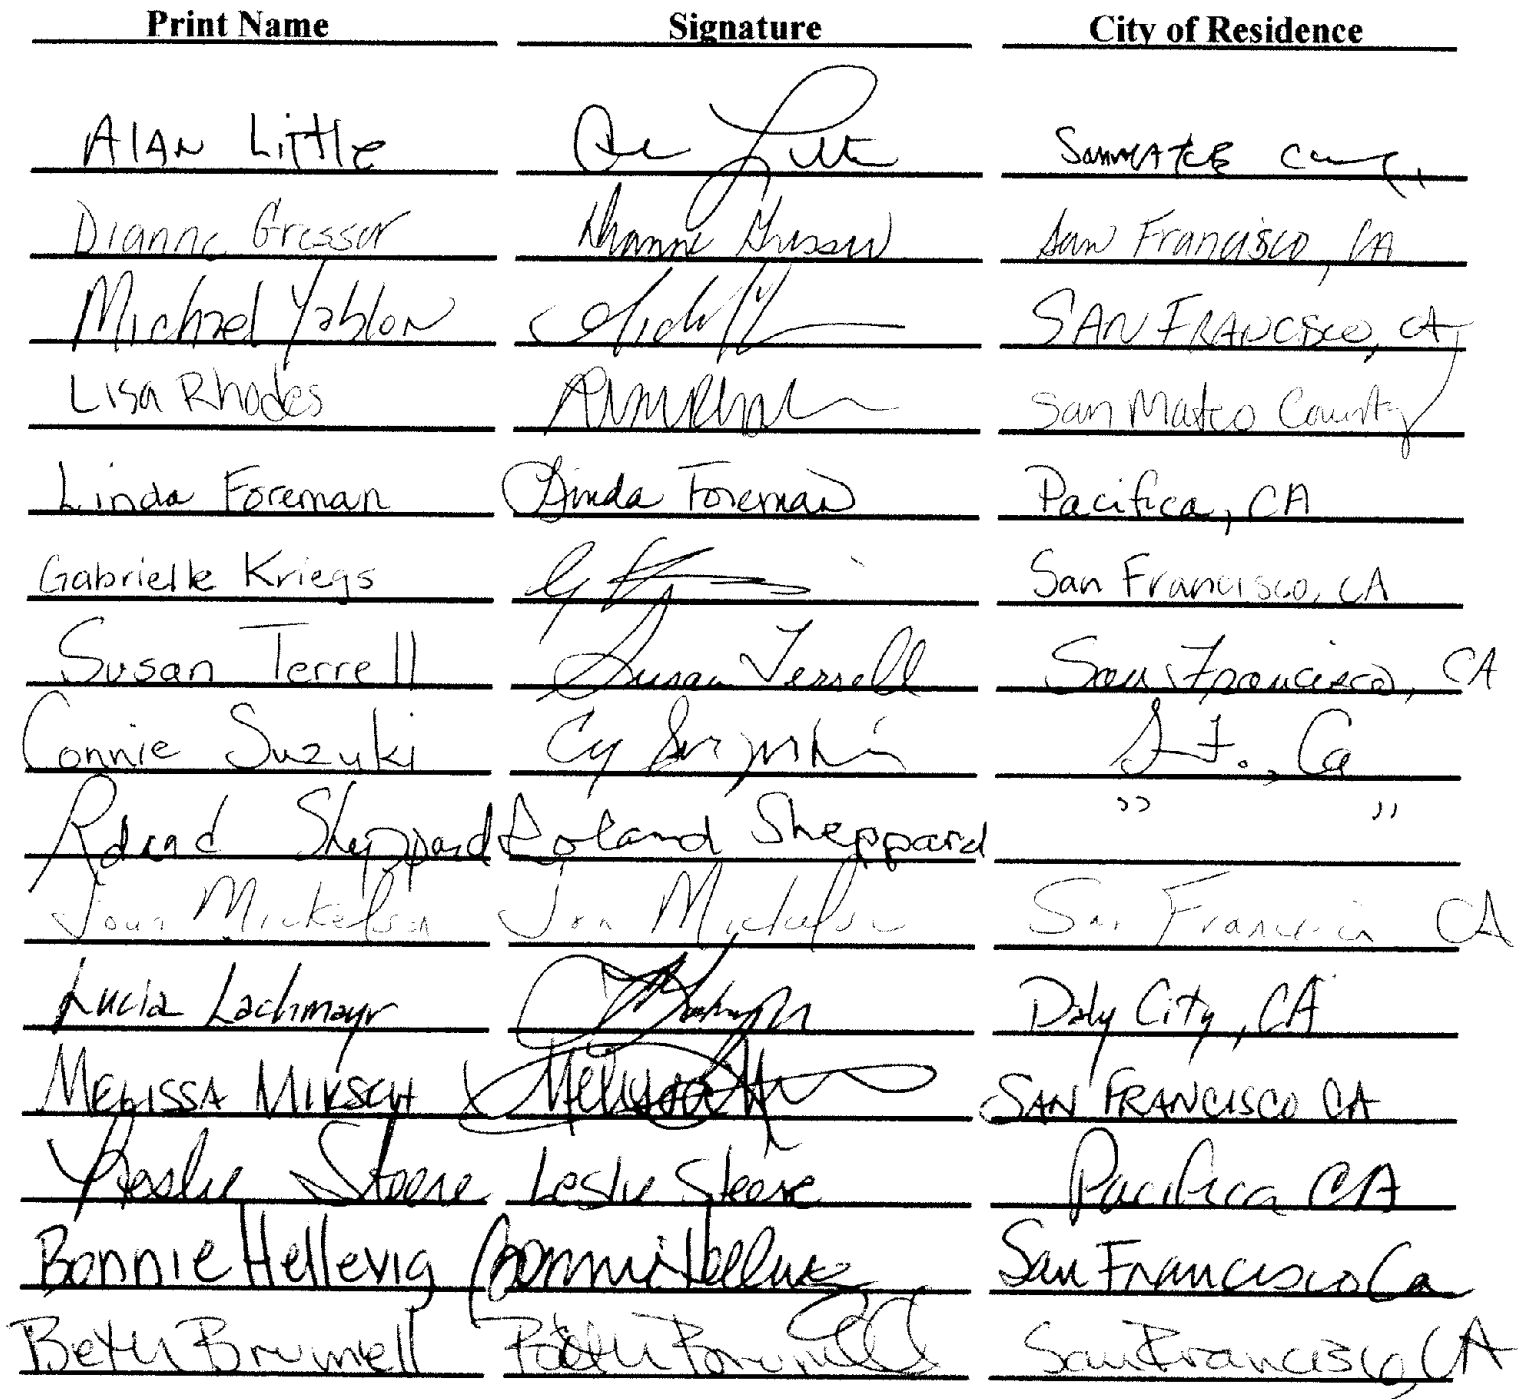 Print Name Signature City of Residence
Alan Little San Mateo County
Dianne Gressor Dianne Gressor San Francisco, CA
Michael Yablon San Francisco, CA
Lisa Rhodes San Mateo County
Linda Foreman Linda Foreman Pacifica, CA
Gabrielle Kriegs San Francisco, CA
Susan Terrell Susan Terrell San Francisco, CA
Connie Suzuki S.F., Ca
Roland Sheppard Roland Sheppard " "
Joan Mickelson San Francisco CA
Lucia Lachmayr Daly City, CA
MELISSA MIKSCH SAN FRANCISCO CA
Leslie Steere Leslie Steere Pacifica CA
Bonnie Hellevig Bonnie Hellevig San Francisco Ca
Beth Brumell Beth Brumell San Francisco, CA